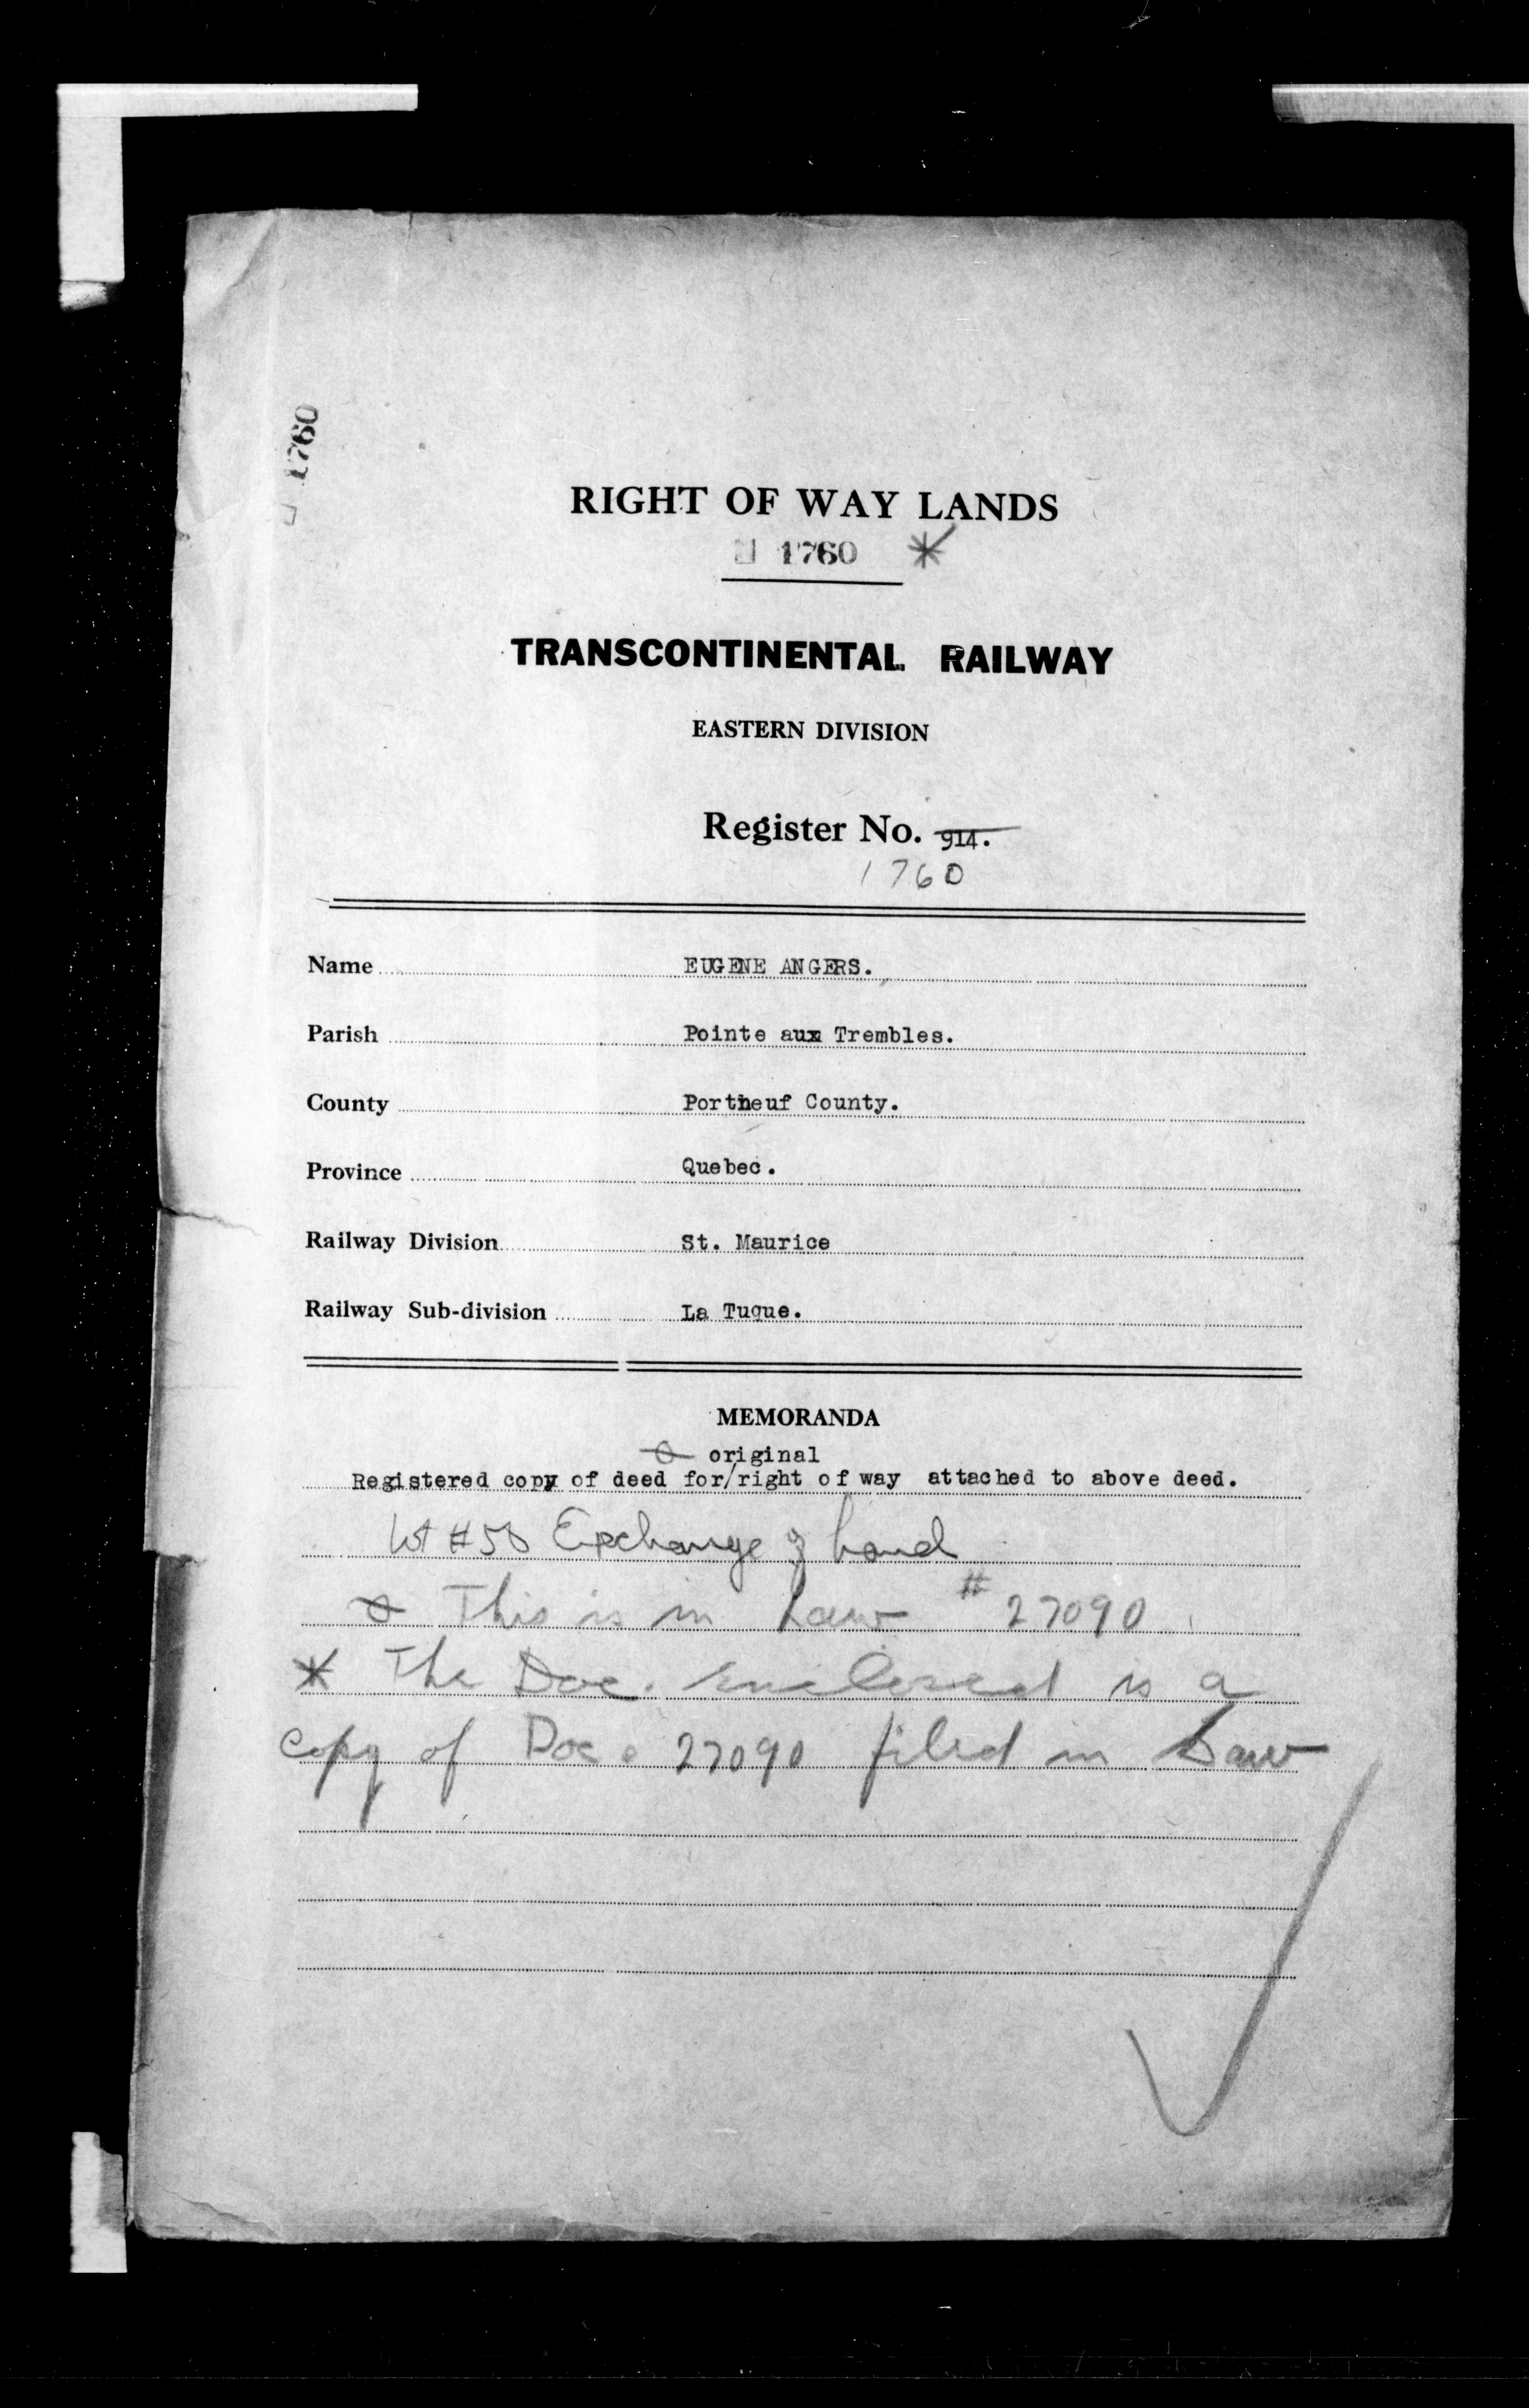 1760
RIGHT OF WAY LANDS
1760 *
TRANSCONTINENTAL RAILWAY
EASTERN DIVISION
Register No. 914.
1760
Name EUGENE ANGERS.
Parish Pointe aux Trembles.
County Portneuf County.
Province Quebec.
Railway Division St. Maurice
Railway Sub-division La Tuque.
MEMORANDA
original
Registered copy of deed for/right of way attached to above deed.
Lot #50 Exchange of Land
This is in Law # 27090
* The Doc. enclosed is a
copy of Doc. 27090 filed in Law